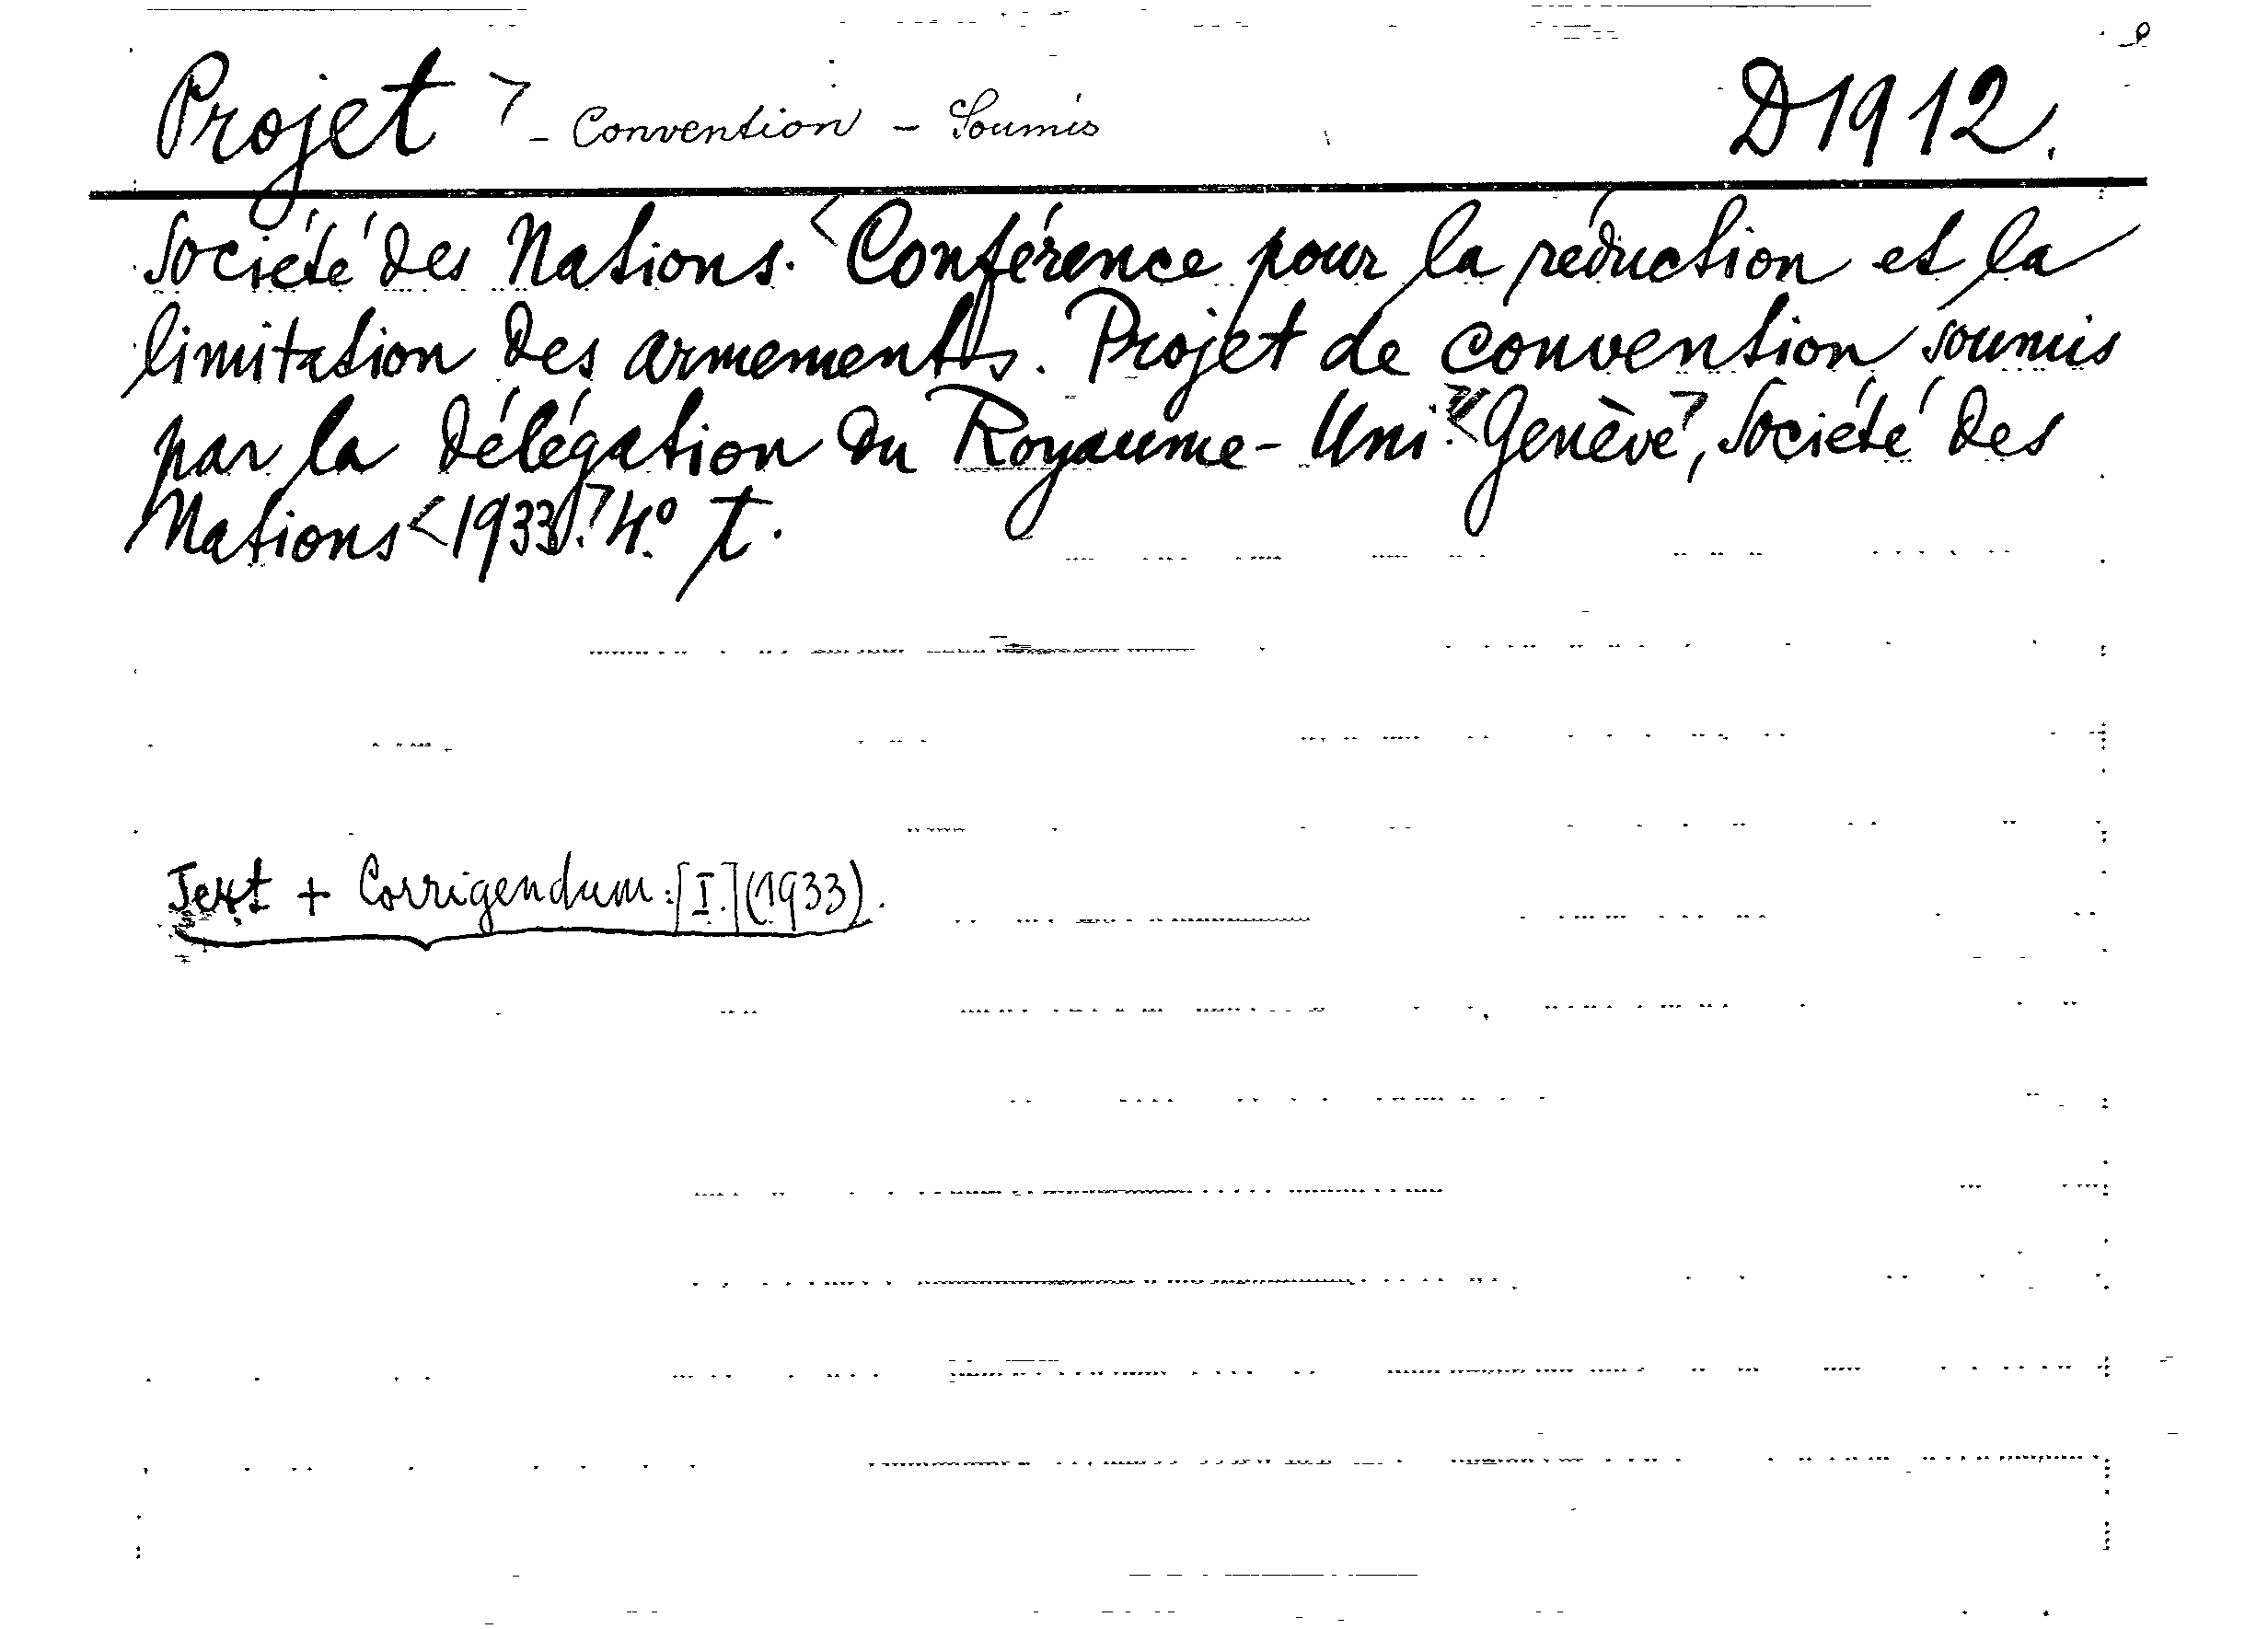 Projet > - Convention - Soumis D1912.
Société des Nations. <Conférence pour la réduction et la
limitation des armements. Projet de convention soumis
par la délégation du Royaume-Uni. <Genève>, Société des
Nations <1933.> 4.° T.
Text + Corrigendum: [I.] (1933).